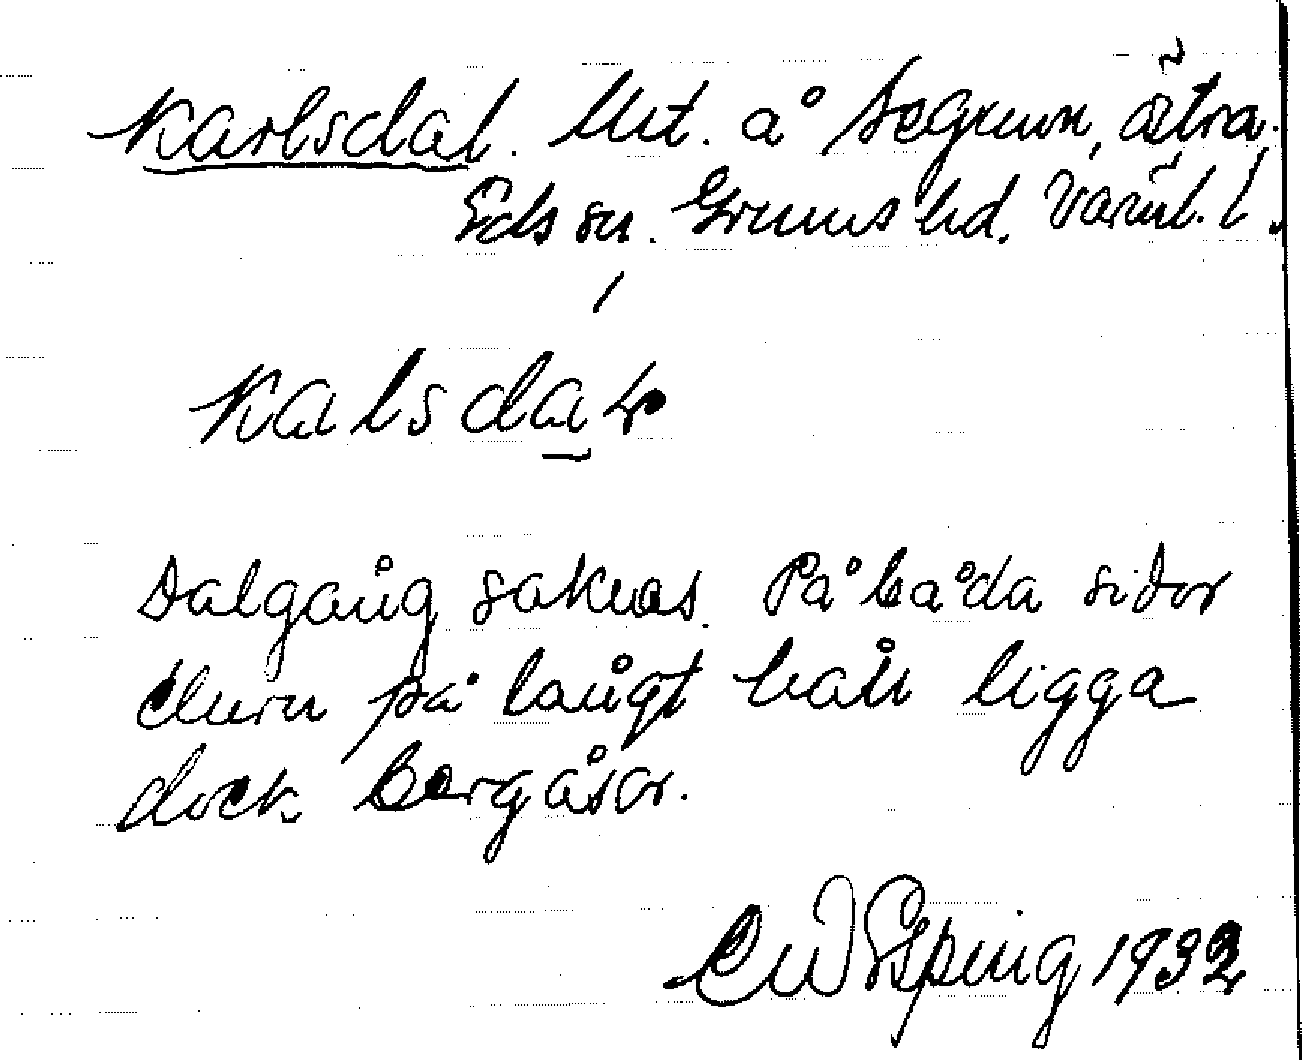 Karlsdal. Urt. å Segmon, östra.
Eds sn. Grums hd. Värml. l.
Kalsda
Dalgång saknas. På båda sidor
på långt håll ligga
dock bergåsar.
1932